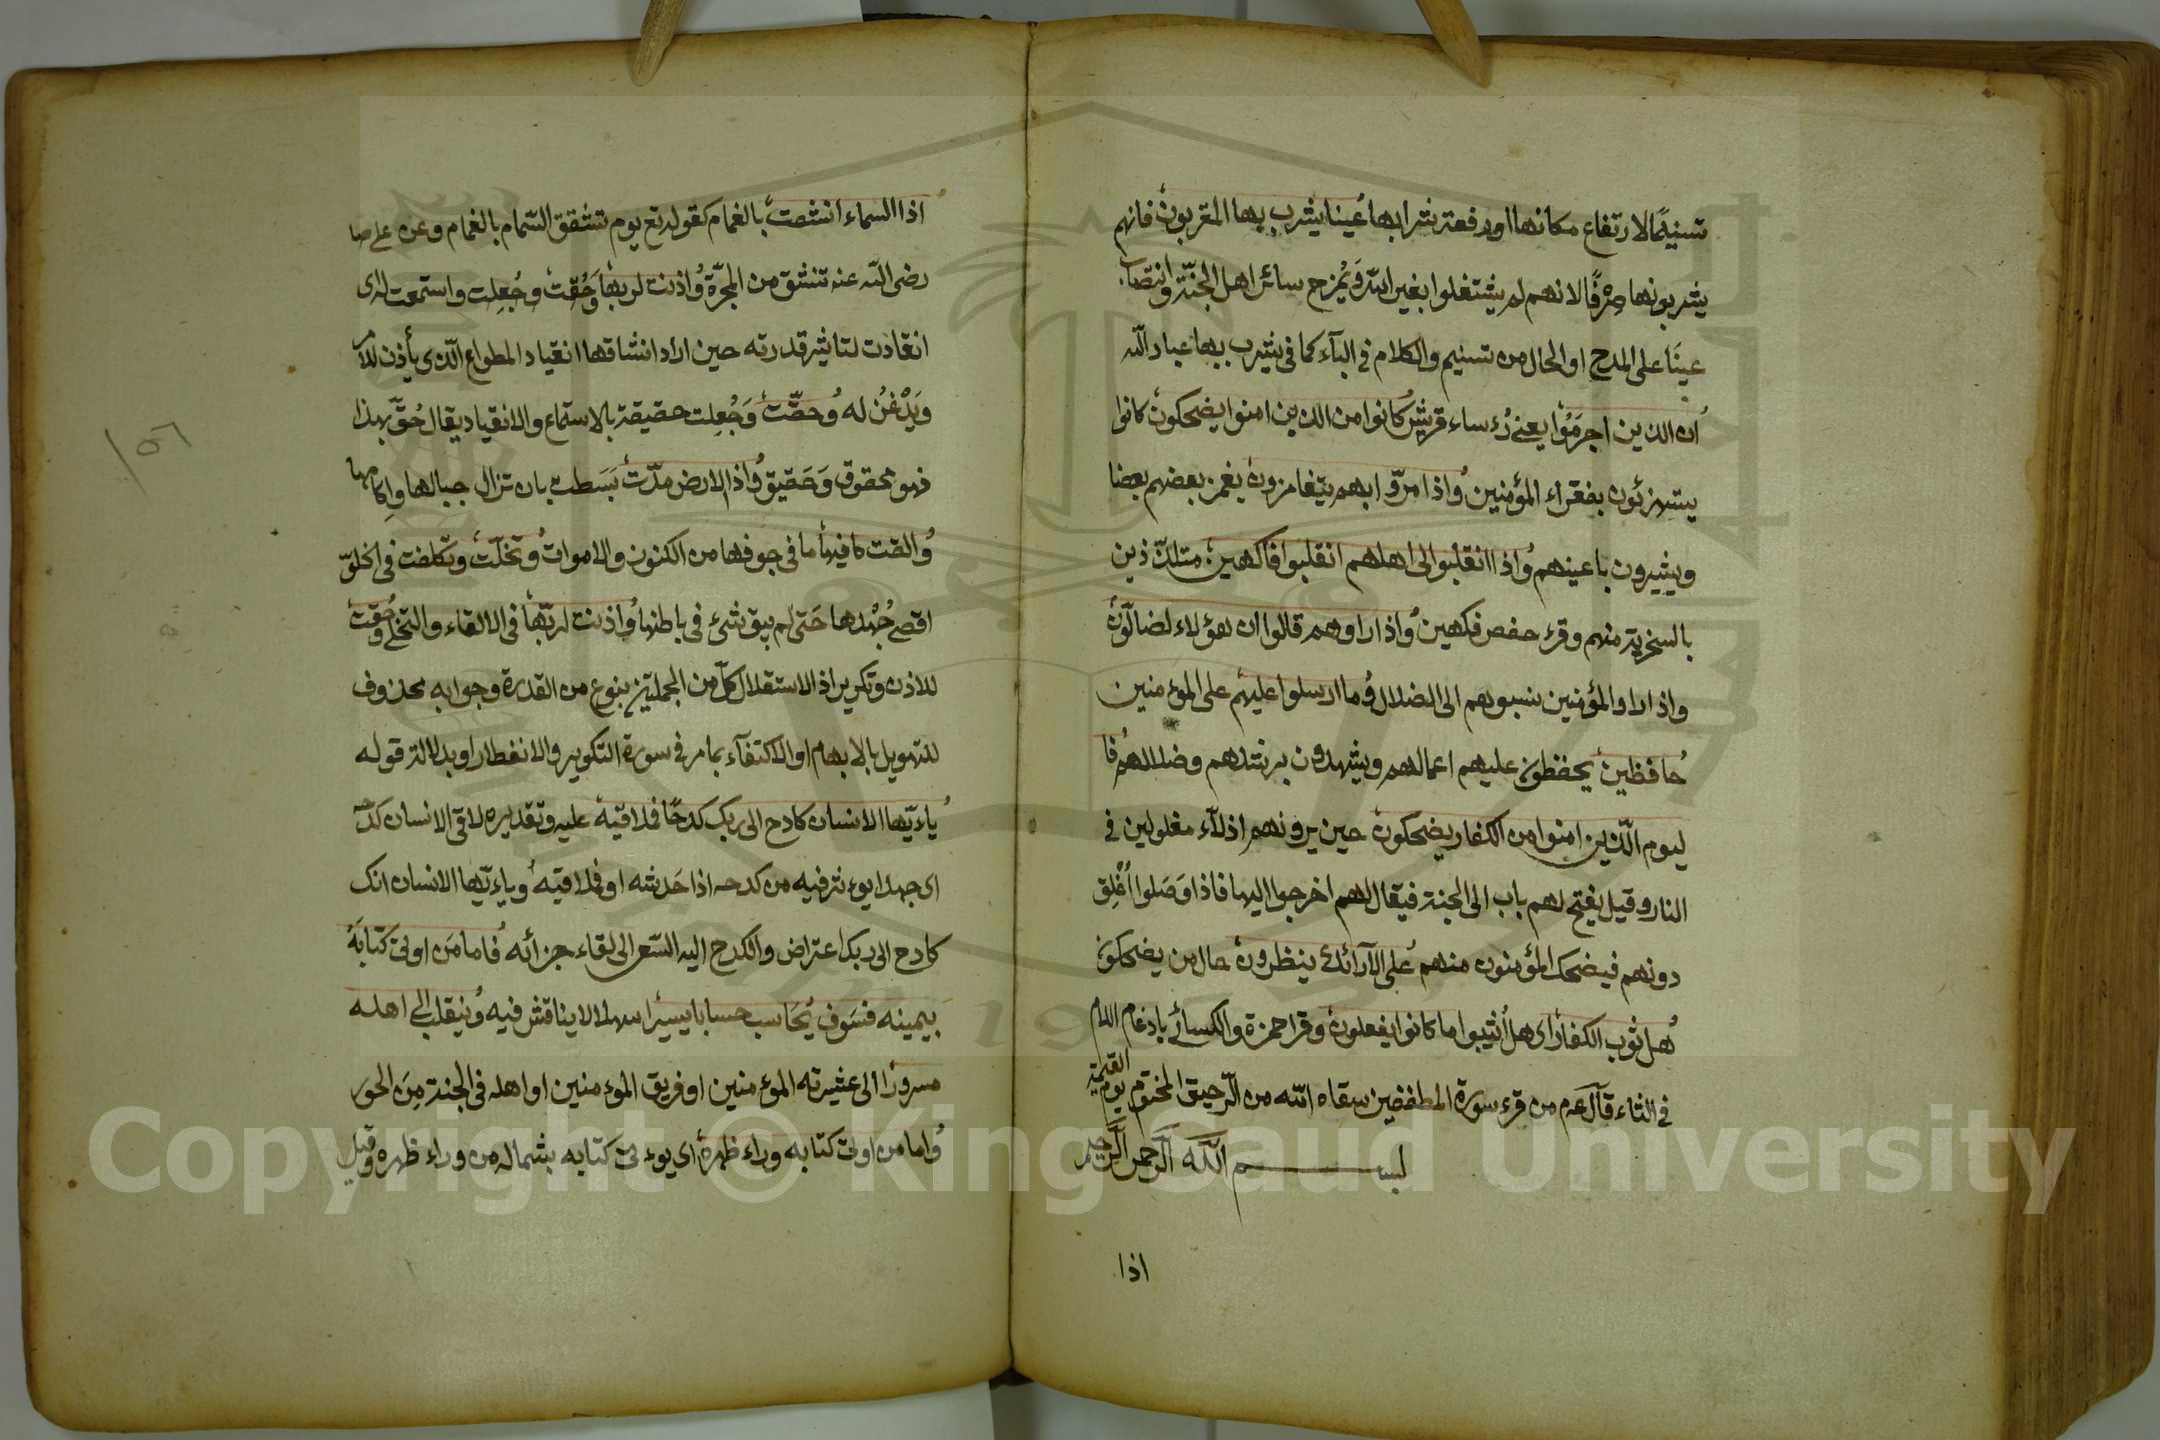 تسنيمًا لارتفاع مكانها او رفعة شرابها عينا يشرب بها المقربون فانهم
يشربونها صِرْفًا لانهم لم يشتغلوا بغير الله وَيُمزج سائر اهل الجنّة وانتصاب
عينًا على المدح او الحال من تسنيم والكلام في البآء كما في يشرب بها عباد الله
ان الذين اجرَمُوا يعني رُءساء قريش كانوا من الذين امنوا يضحكون كانوا
يستهزئون بفقراء المؤمنين واذا مرّوا بهم يتغامزون يغمز بعضهم بعضا
ويشيرون باعينهم واذا انقلبوا الى اهلهم انقلبوا فاكهين متلذّذين
بالسخرية منهم وقرء حفص فكهين واذا راوهم قالوا ان هؤلاء لضآلّون
واذا راوا المؤمنين نسبوهم الى الضلال وما ارسلوا عليهم على الموءمنين
حافظين يحفظون عليهم اعمالهم ويشهدون برشدهم وضلالهم فا
ليوم الّذين امنوا من الكفار يضحكون حين يرونهم اذلآء مغلولين في
النار وقيل يفتح لهم باب الى الجنة فيقال لهم اخرجوا اليها فاذا وَصَلوا اُغْلِق
دونهم فيضحك المؤمنون منهم على الآرائك ينظرون حال من يضحكون
هل ثوب الكفار اى هل اُثيبوا ما كانوا يفعلون وقرا حمزة والكسائي بادغام اللام
في الثاء قآل عم من قرء سورة المطففين سقاه الله من الرّحيق المختوم يوم القيمة
بســـــــم اللّه الرّحمن الرّحيم
اذا
اذا السماء انشقت بالغمام كقوله تع يوم تشقق السّماء بالغمام وعن على
رضى الله عنه تنشق من المجرّة واذنت لربها وَحُقت وجُعِلت واستمعت له اى
انقادت لتاثير قدرته حين اراد انشقاقها انقياد المطواع الّذى يأذن للآمر
ويَذْعُن له وحقّت وَجُعِلت حقيقة بالاستماع والانقياد يقال حُقّ بهذا
فهو محقوق وَحَقيق واذا الارض مدّت بَسَطت بان تزال جبالها واِكامها
والقت ما فيها ما في جوفها من الكنوز والاموات وتخلّت وتكلفت في الخلوّ
اقصى جُهْدها حَتى لم يبق شئ في باطنها واذنت لربّها في الالقاء والتخلى وحُقت
للاذن وتكرير اذ الاستقلال كلّ من الجملتين بنوع من القدرة وجوابه محذوف
للتهويل بالابهام او الاكتفآء بما مر في سورة التكوير والانفطار او بدلالة قوله
ياءيّها الانسان كادح الى ربك كدحًا فملاقيه عليه وتقديره لاقى الانسان كدحه
اى جهدا يوءثر فيه من كدحه اذا خَدشه او فملاقيه وياءيّها الانسان انك
كادح الى ربك اعتراض والكدح اليه السّعى الى لقاء جزائه فاما مَن اوتى كتابَهُ
بيمينه فسَوف يُحَاسب حسابا يسيرا سهلا لا يناقش فيه وينقلب الى اهله
مسرورًا الى عشيرته الموءمنين او فريق الموءمنين او اهله في الجنة مِنَ الحور
واما من اوتى كتابه وراء ظهره اى يوءتى كتابه بشماله من وراء ظهره وقيل
Copyright © King Saud University